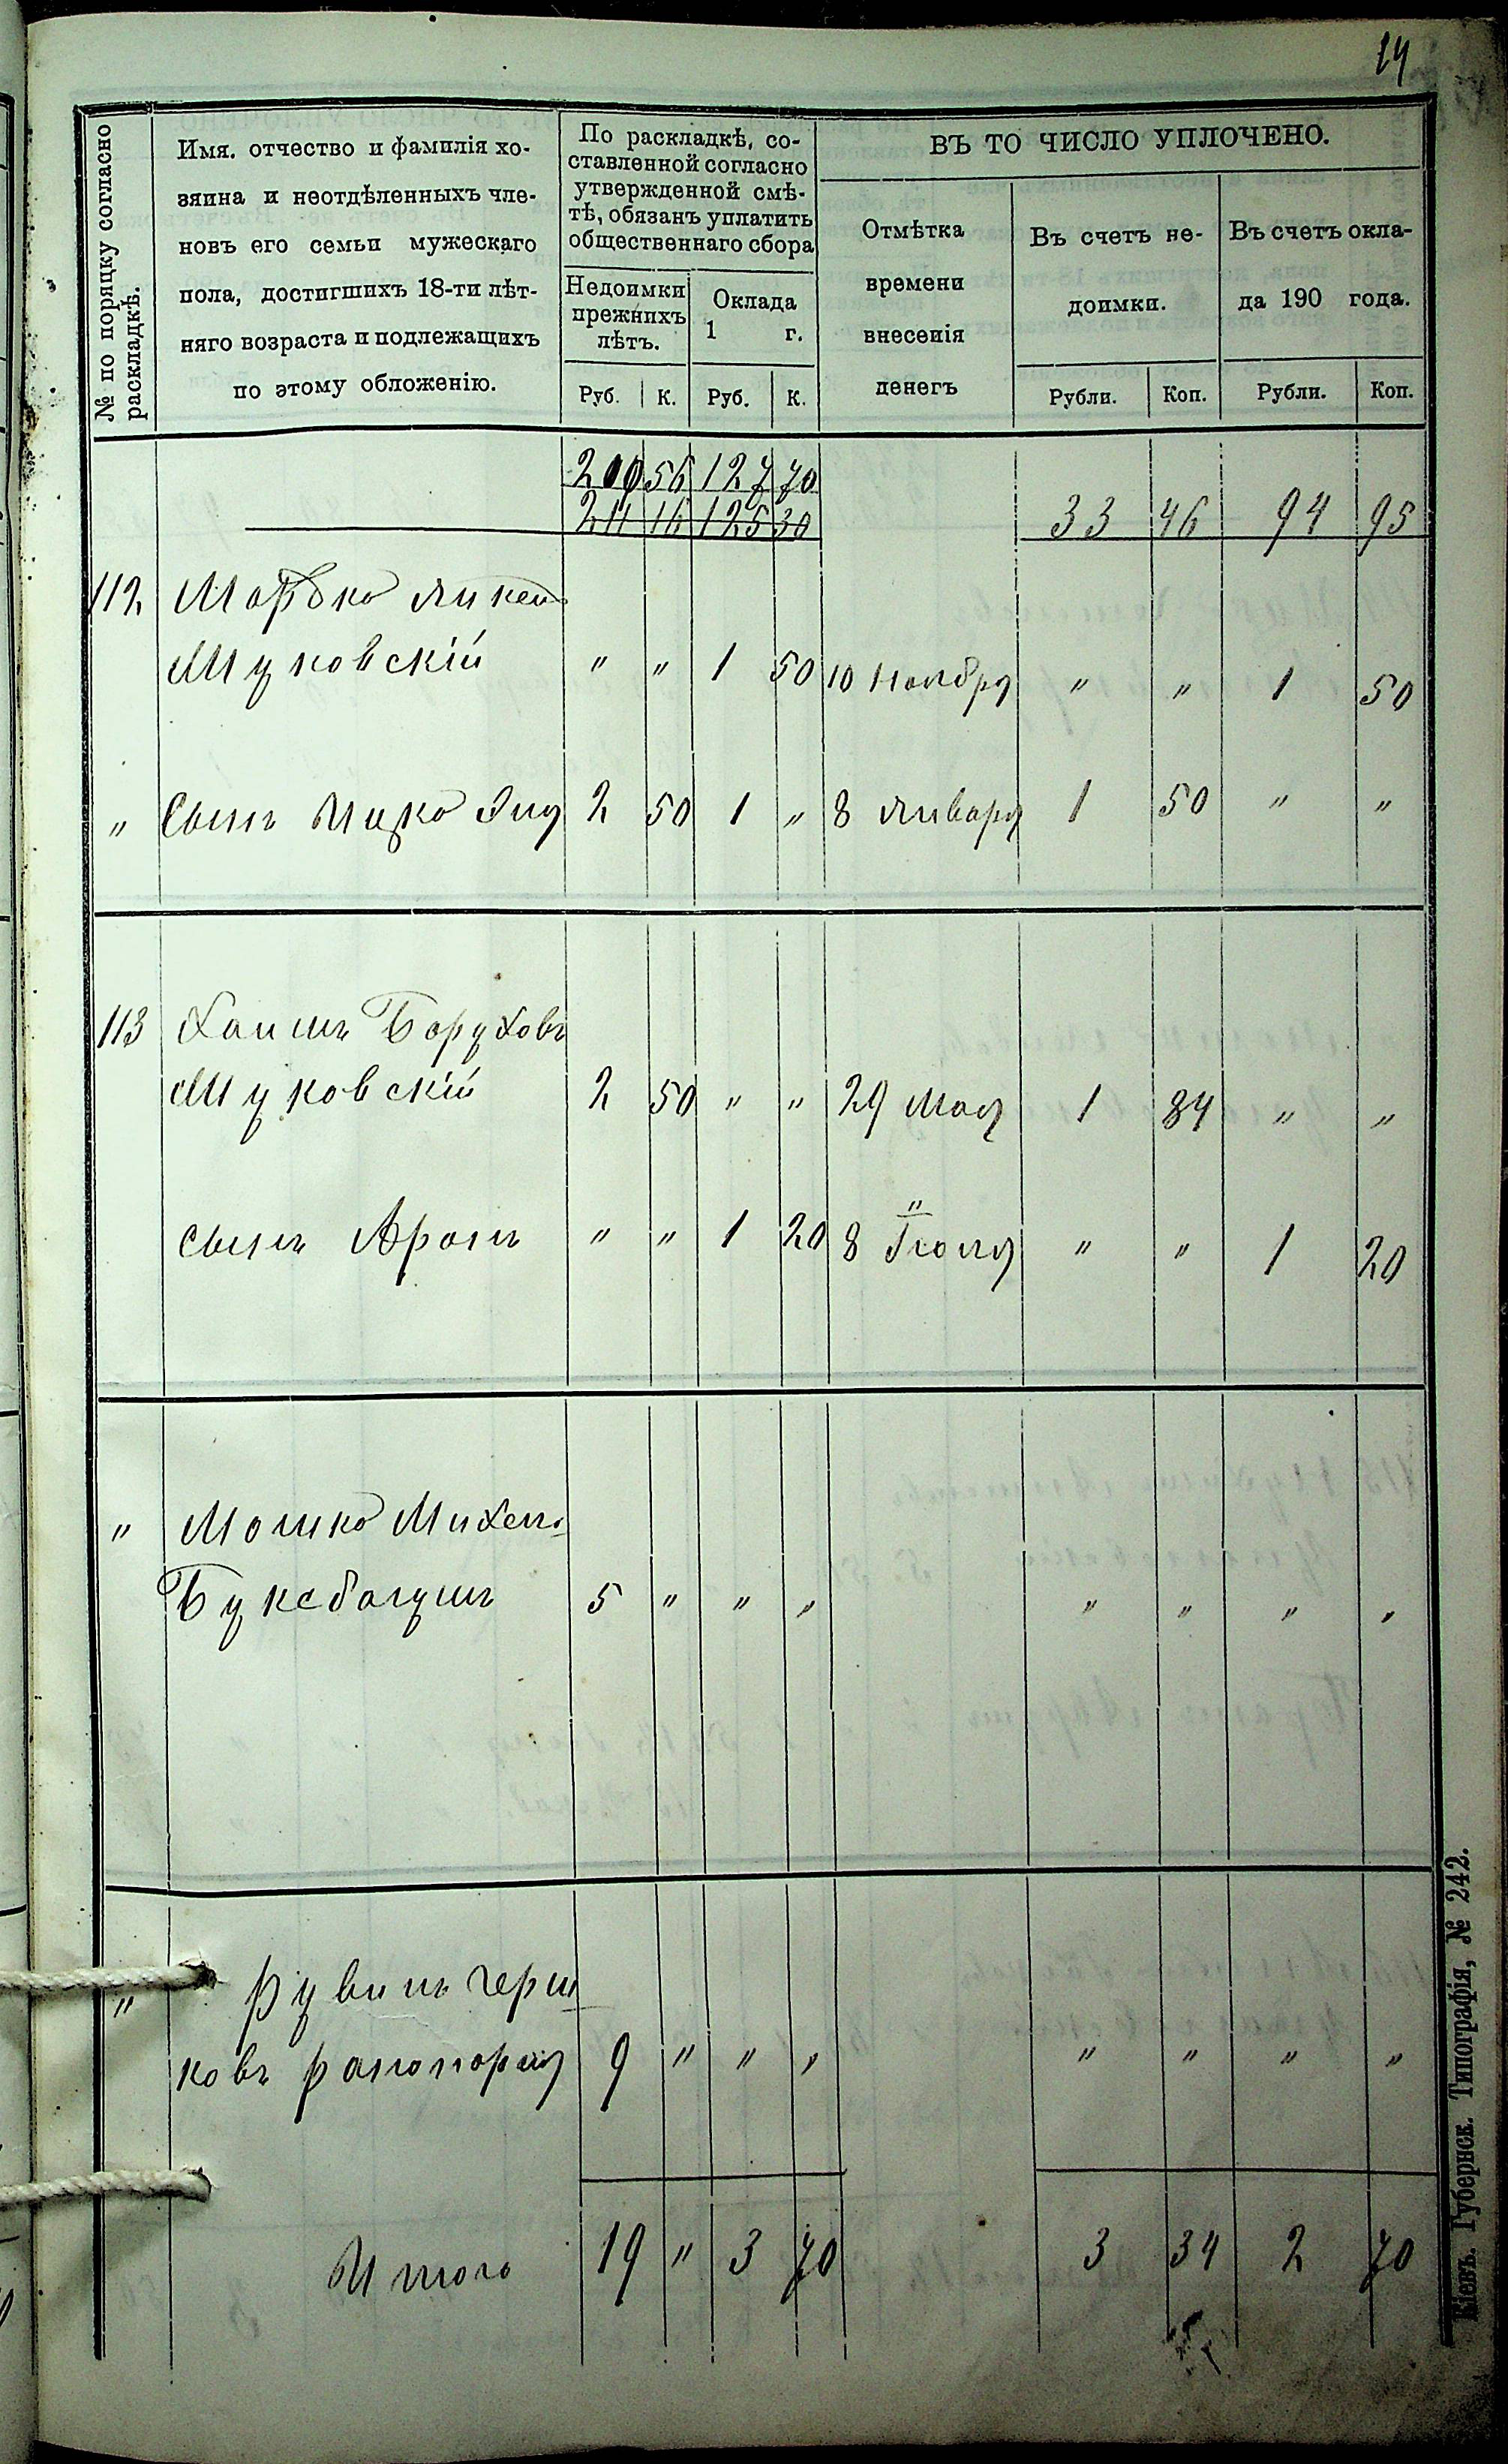 14
№ по порядку согласно раскладкѣ.
Имя, отчество и фамилія хо-
зяина и неотдѣленныхъ чле-
новъ его семьи мужескаго
пола, достигшихъ 18-ти лѣт-
няго возраста и подлежащихъ
по этому обложенію.
По раскладкѣ, со-
ставленной согласно
утвержденной смѣ-
тѣ, обязанъ уплатить
общественнаго сбора
Недоимки
прежнихъ
лѣтъ.
Оклада
1 г.
Руб. К. Руб. К.
ВЪ ТО ЧИСЛО УПЛОЧЕНО.
Отмѣтка
времени
внесенія
денегъ
Въ счетъ не-
доимки.
Въ счетъ окла-
да 190 года.
Рубли. Коп. Рубли. Коп.
200 56 127 70
211 16 125 30 33 46 94 95
112 Мордко
Муковскій " " 1 50 10 Ноября " " 1 50
" Сынъ Ицко 2 50 1 " 8 Января 1 50 " "
113 Хаимъ Боруховъ
Муковскій 2 50 " " 29 Мая 1 84 " "
"
Сынъ Аронъ " " 1 20 8 " " 1 20
" Мошко Михел.
Буксбаумъ 5 " " " " " " "
" Рувинъ Герш
ковъ Рапопортъ 9 " " " " " " "
Итого 19 " 3 70 3 34 2 70
Кіевъ. Губернск. Типографія, № 242.